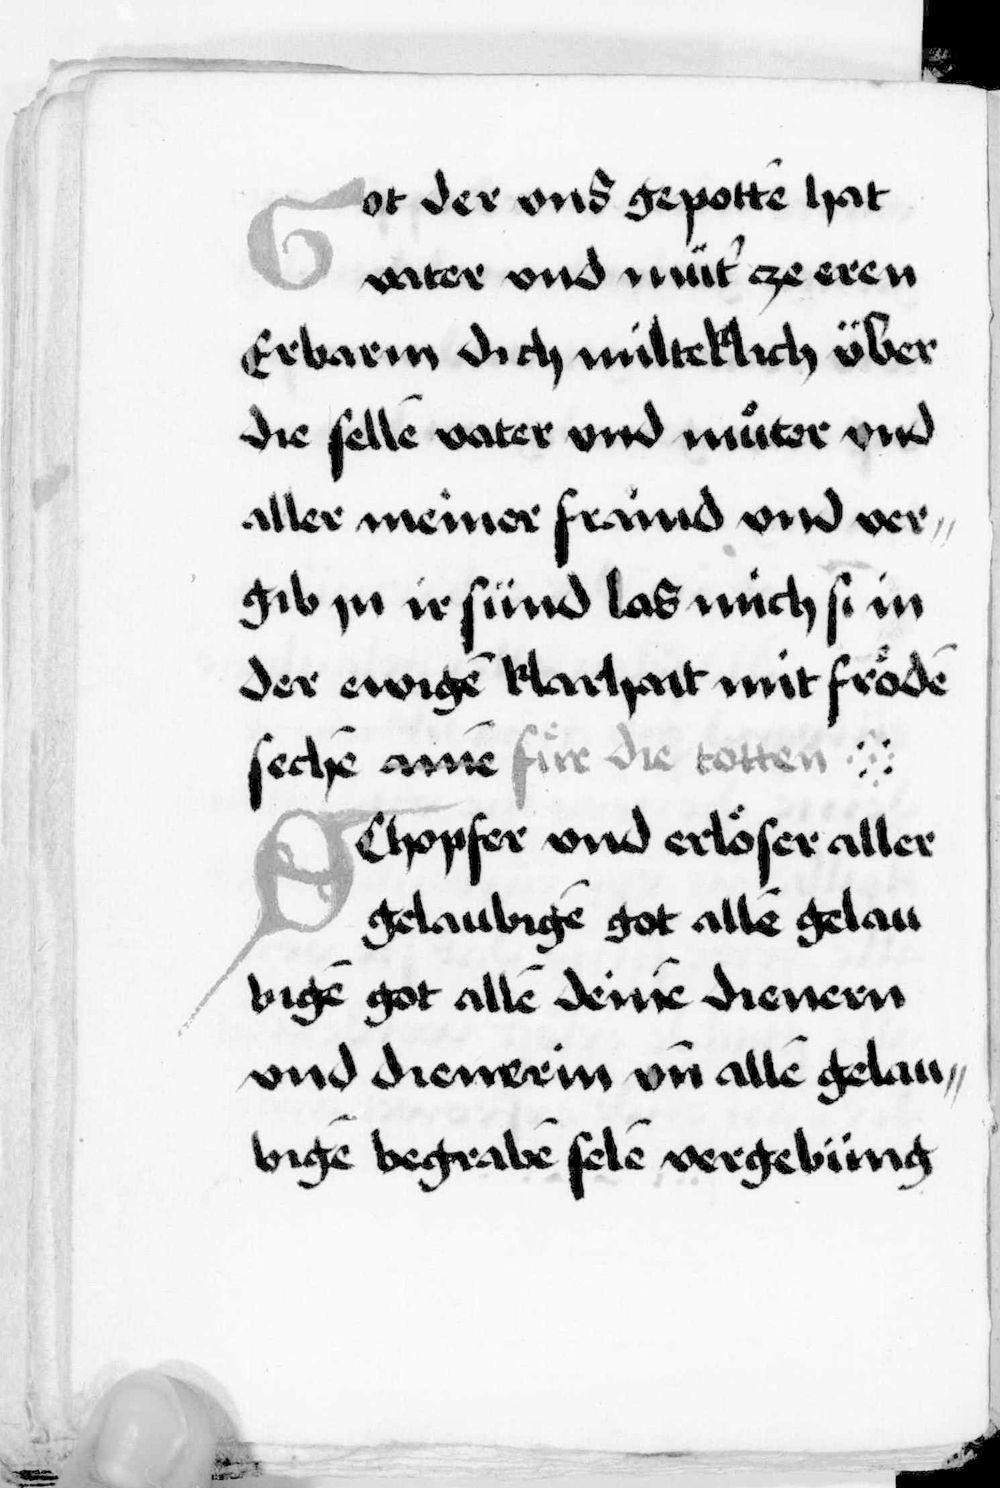 Got der vns gepottē hat
vater vnd müt' ze eren
Erbarm dich milteklich über
die sellē vater vnd muͦter vnd
aller meiner fraind vnd ver„
gib in ir sünd las mich si in
der ewigē klarhait mit froͤdē
sechē amē fuͤr die totten
SChopfer vnd erloͤser aller
gelaubigē got allē gelau
bigē got allē deinē dienern
vnd dienerin vn̄ allē gelau„
bigē begrabē selē vergebüng